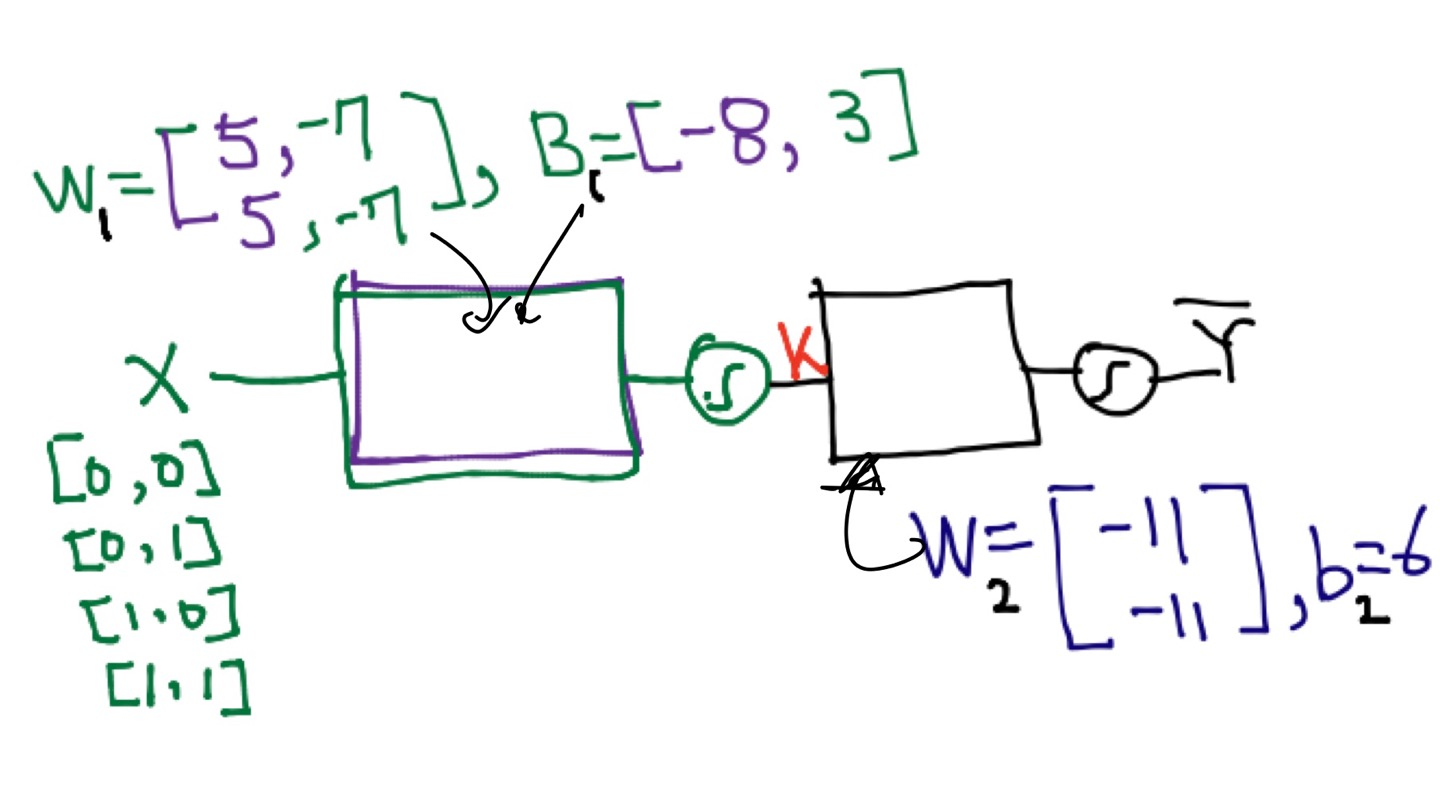 W₁ = [5, -7
5, -7], B₁ = [-8, 3]
X
K
Y̅
[0,0]
[0,1]
[1,0]
[1,1]
W₂ = [-11
-11], b₂ = 6